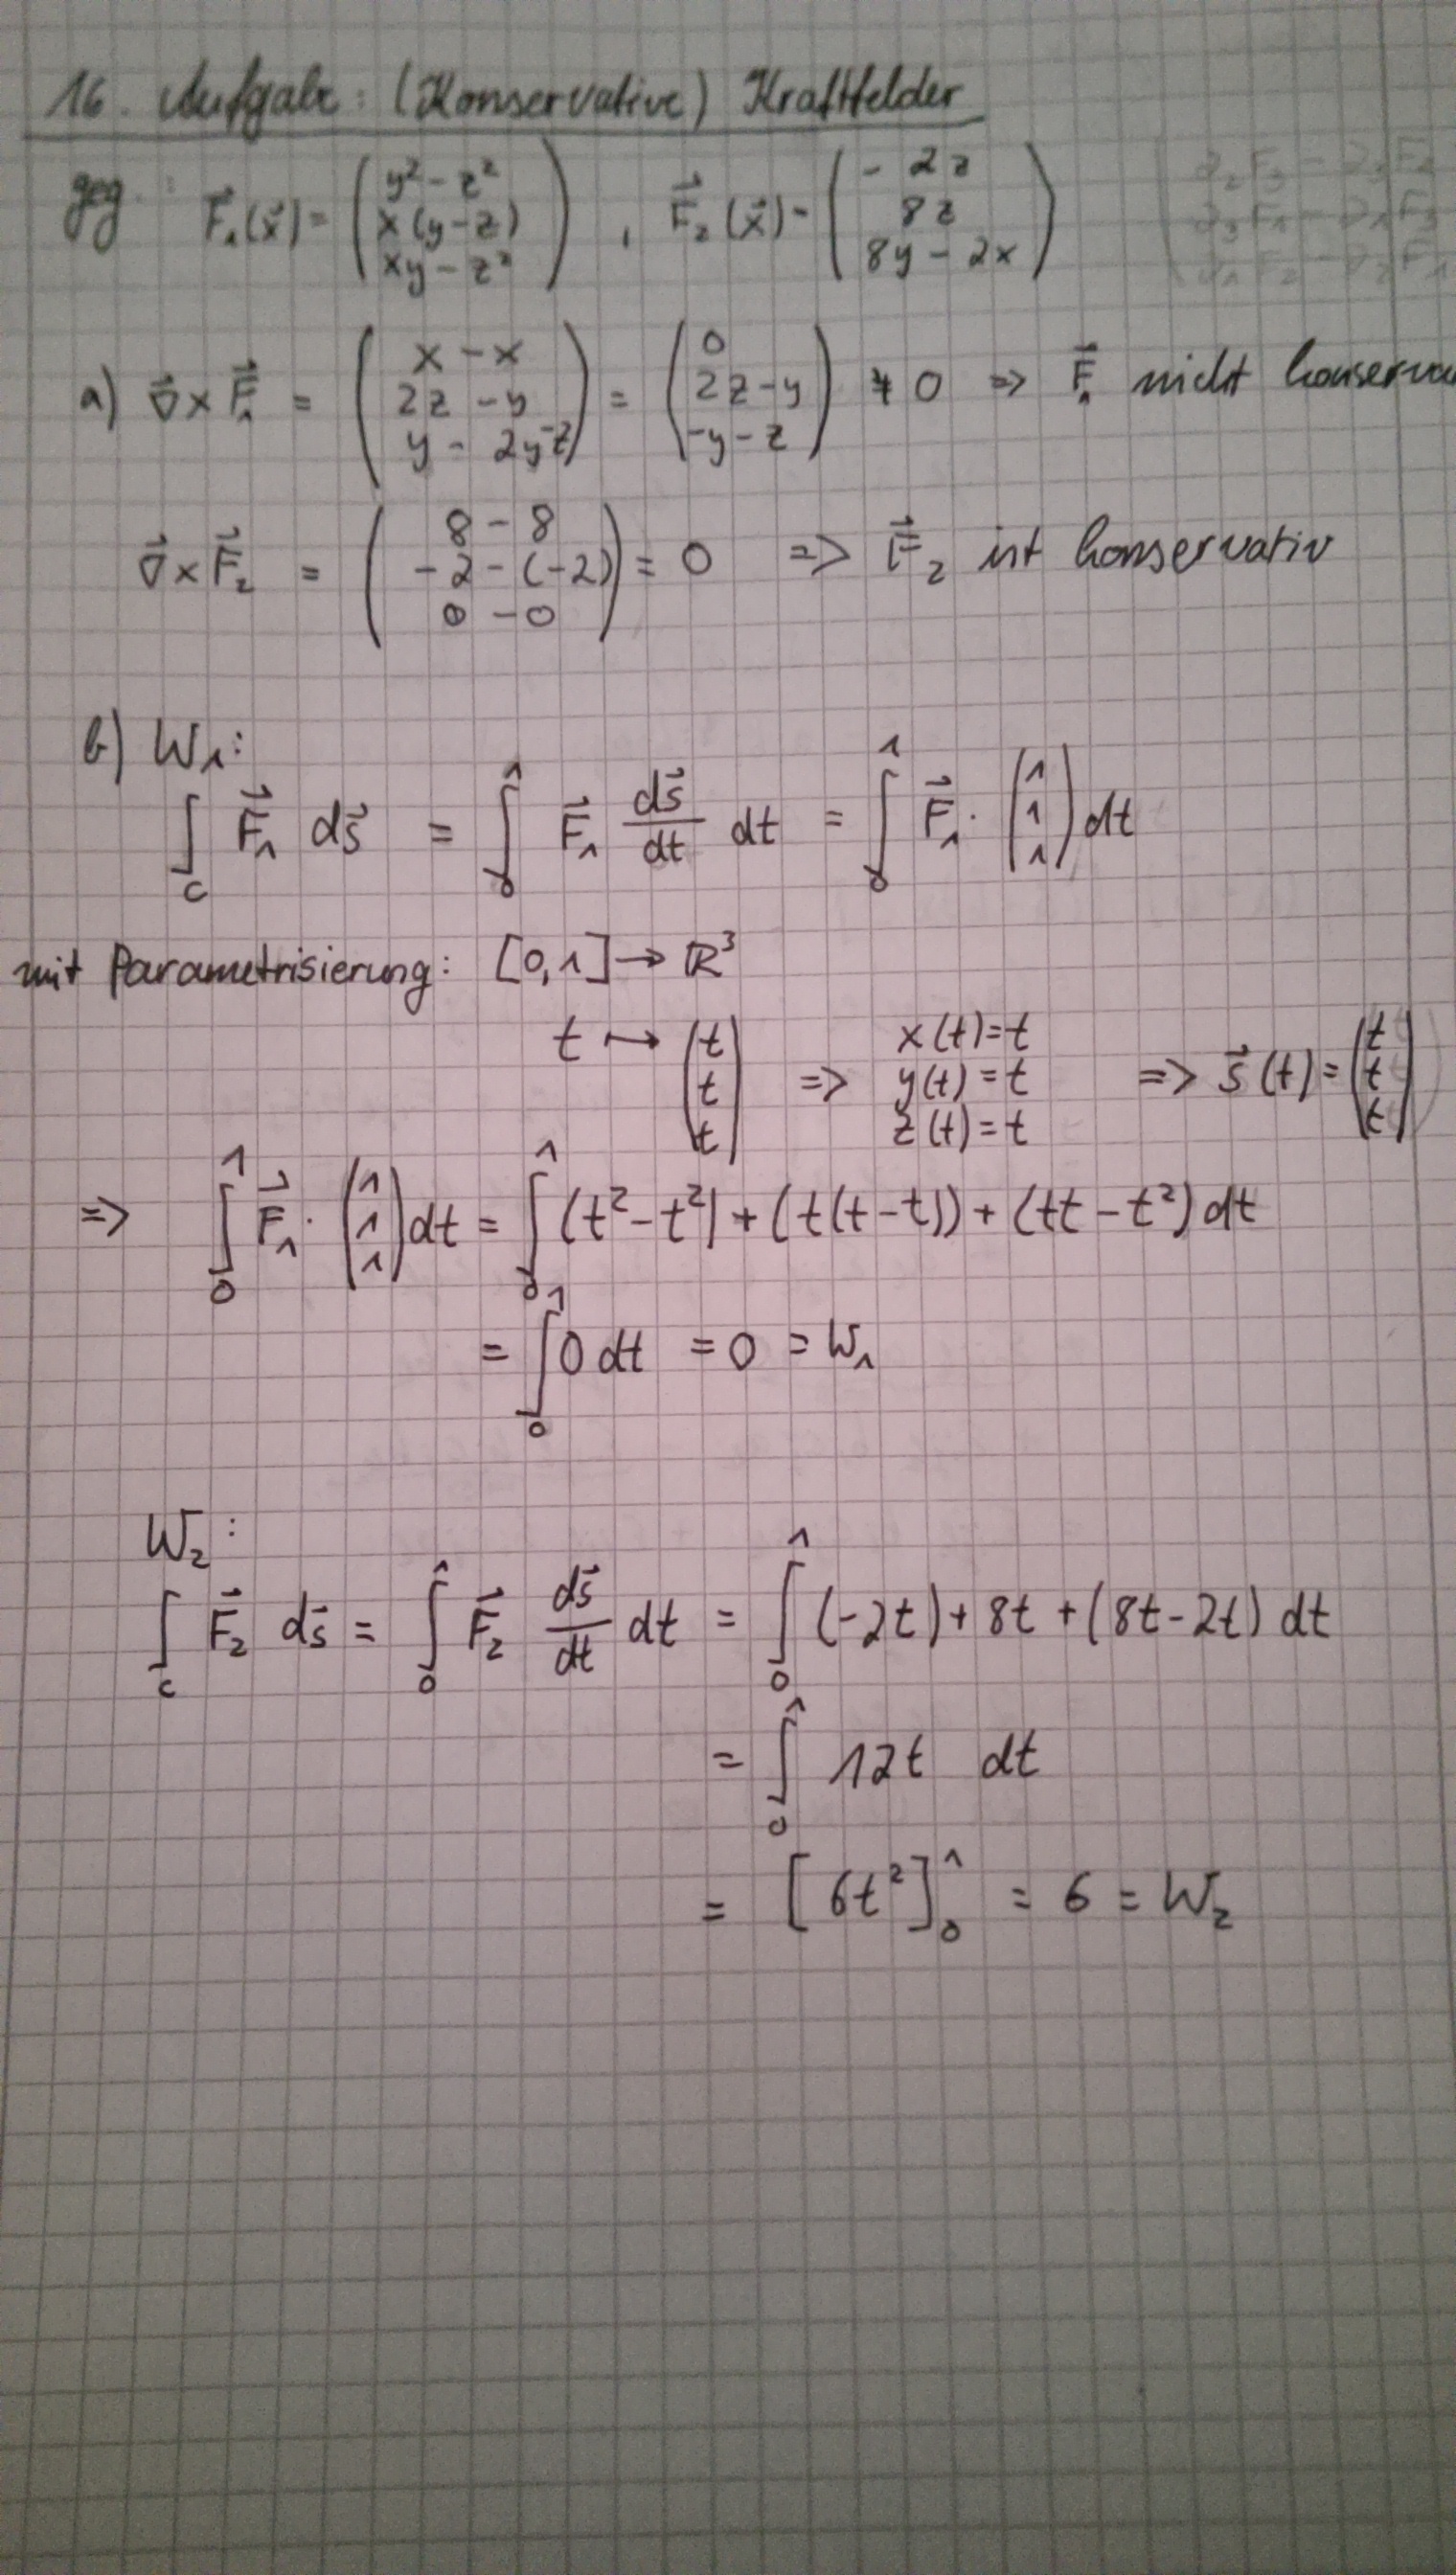 16. Aufgabe: (Konservative) Kraftfelder
geg: F⃗₁(x⃗) = (y² - z², x(y - z), xy - z²), F⃗₂(x⃗) = (-2z, 8z, 8y - 2x)
a) ∇⃗ × F⃗₁ = (x - x, 2z - y, y - 2y - z) = (0, 2z - y, -y - z) ≠ 0 => F⃗₁ nicht konserva
∇⃗ × F⃗₂ = (8 - 8, -2 - (-2), 0 - 0) = 0 => F⃗₂ ist konservativ
b) W₁:
∫_C F⃗₁ ds⃗ = ∫₀¹ F⃗₁ ds⃗/dt dt = ∫₀¹ F⃗₁ · (1, 1, 1) dt
mit Parametrisierung: [0,1] → ℝ³
t ↦ (t, t, t) => x(t) = t, y(t) = t, z(t) = t => s⃗(t) = (t, t, t)
=> ∫₀¹ F⃗₁ · (1, 1, 1) dt = ∫₀¹ (t² - t²) + (t(t - t)) + (tt - t²) dt
= ∫₀¹ 0 dt = 0 = W₁
W₂:
∫_C F⃗₂ ds⃗ = ∫₀¹ F⃗₂ ds⃗/dt dt = ∫₀¹ (-2t) + 8t + (8t - 2t) dt
= ∫₀¹ 12t dt
= [6t²]₀¹ = 6 = W₂